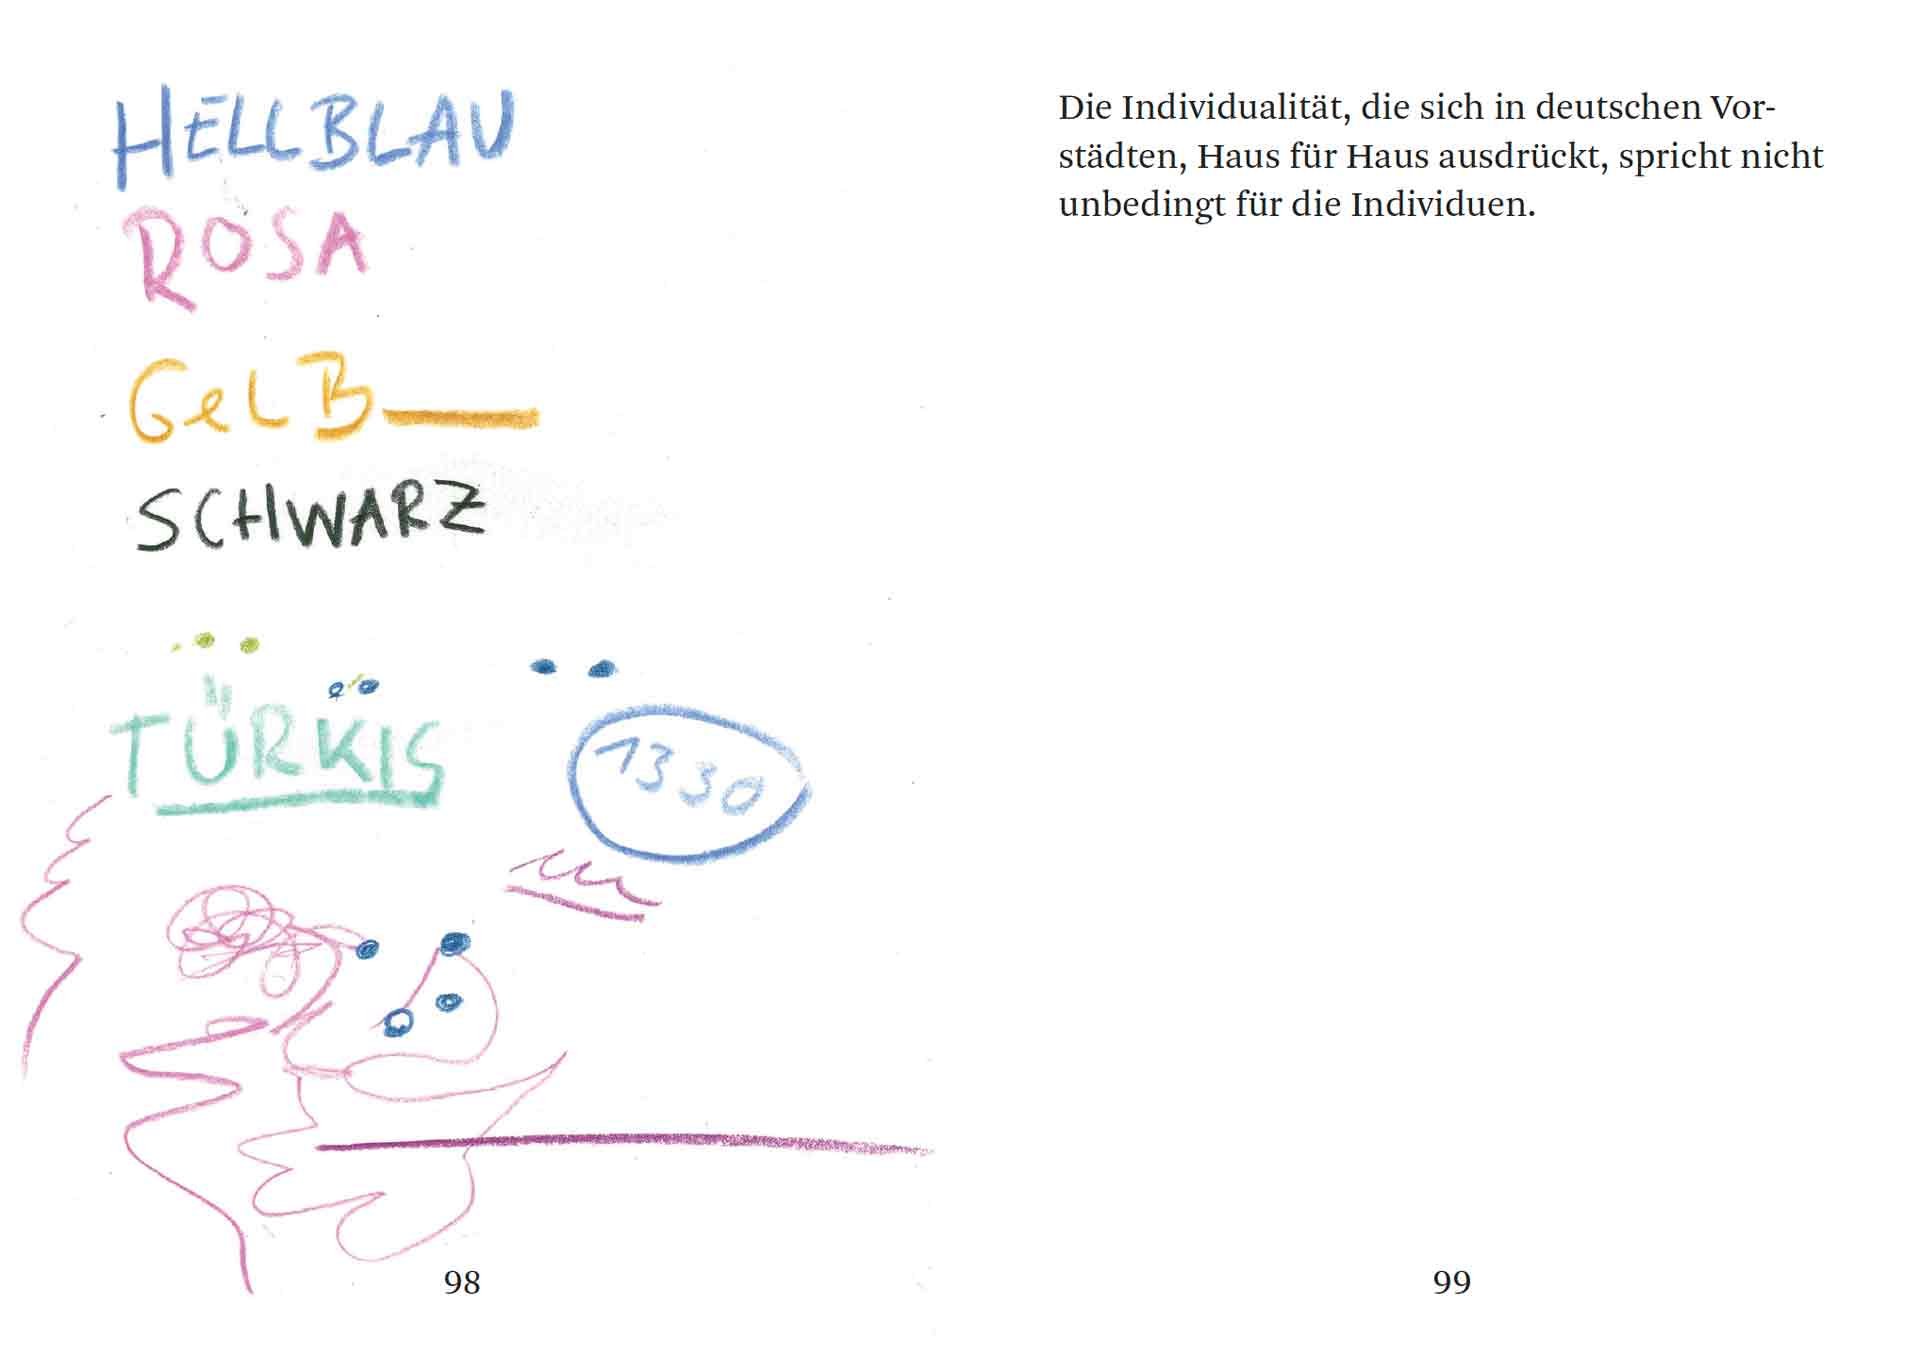 HELLBLAU
ROSA
GeLB
SCHWARZ
TÜRKIS
1330
98
Die Individualität, die sich in deutschen Vor-
städten, Haus für Haus ausdrückt, spricht nicht
unbedingt für die Individuen.
99